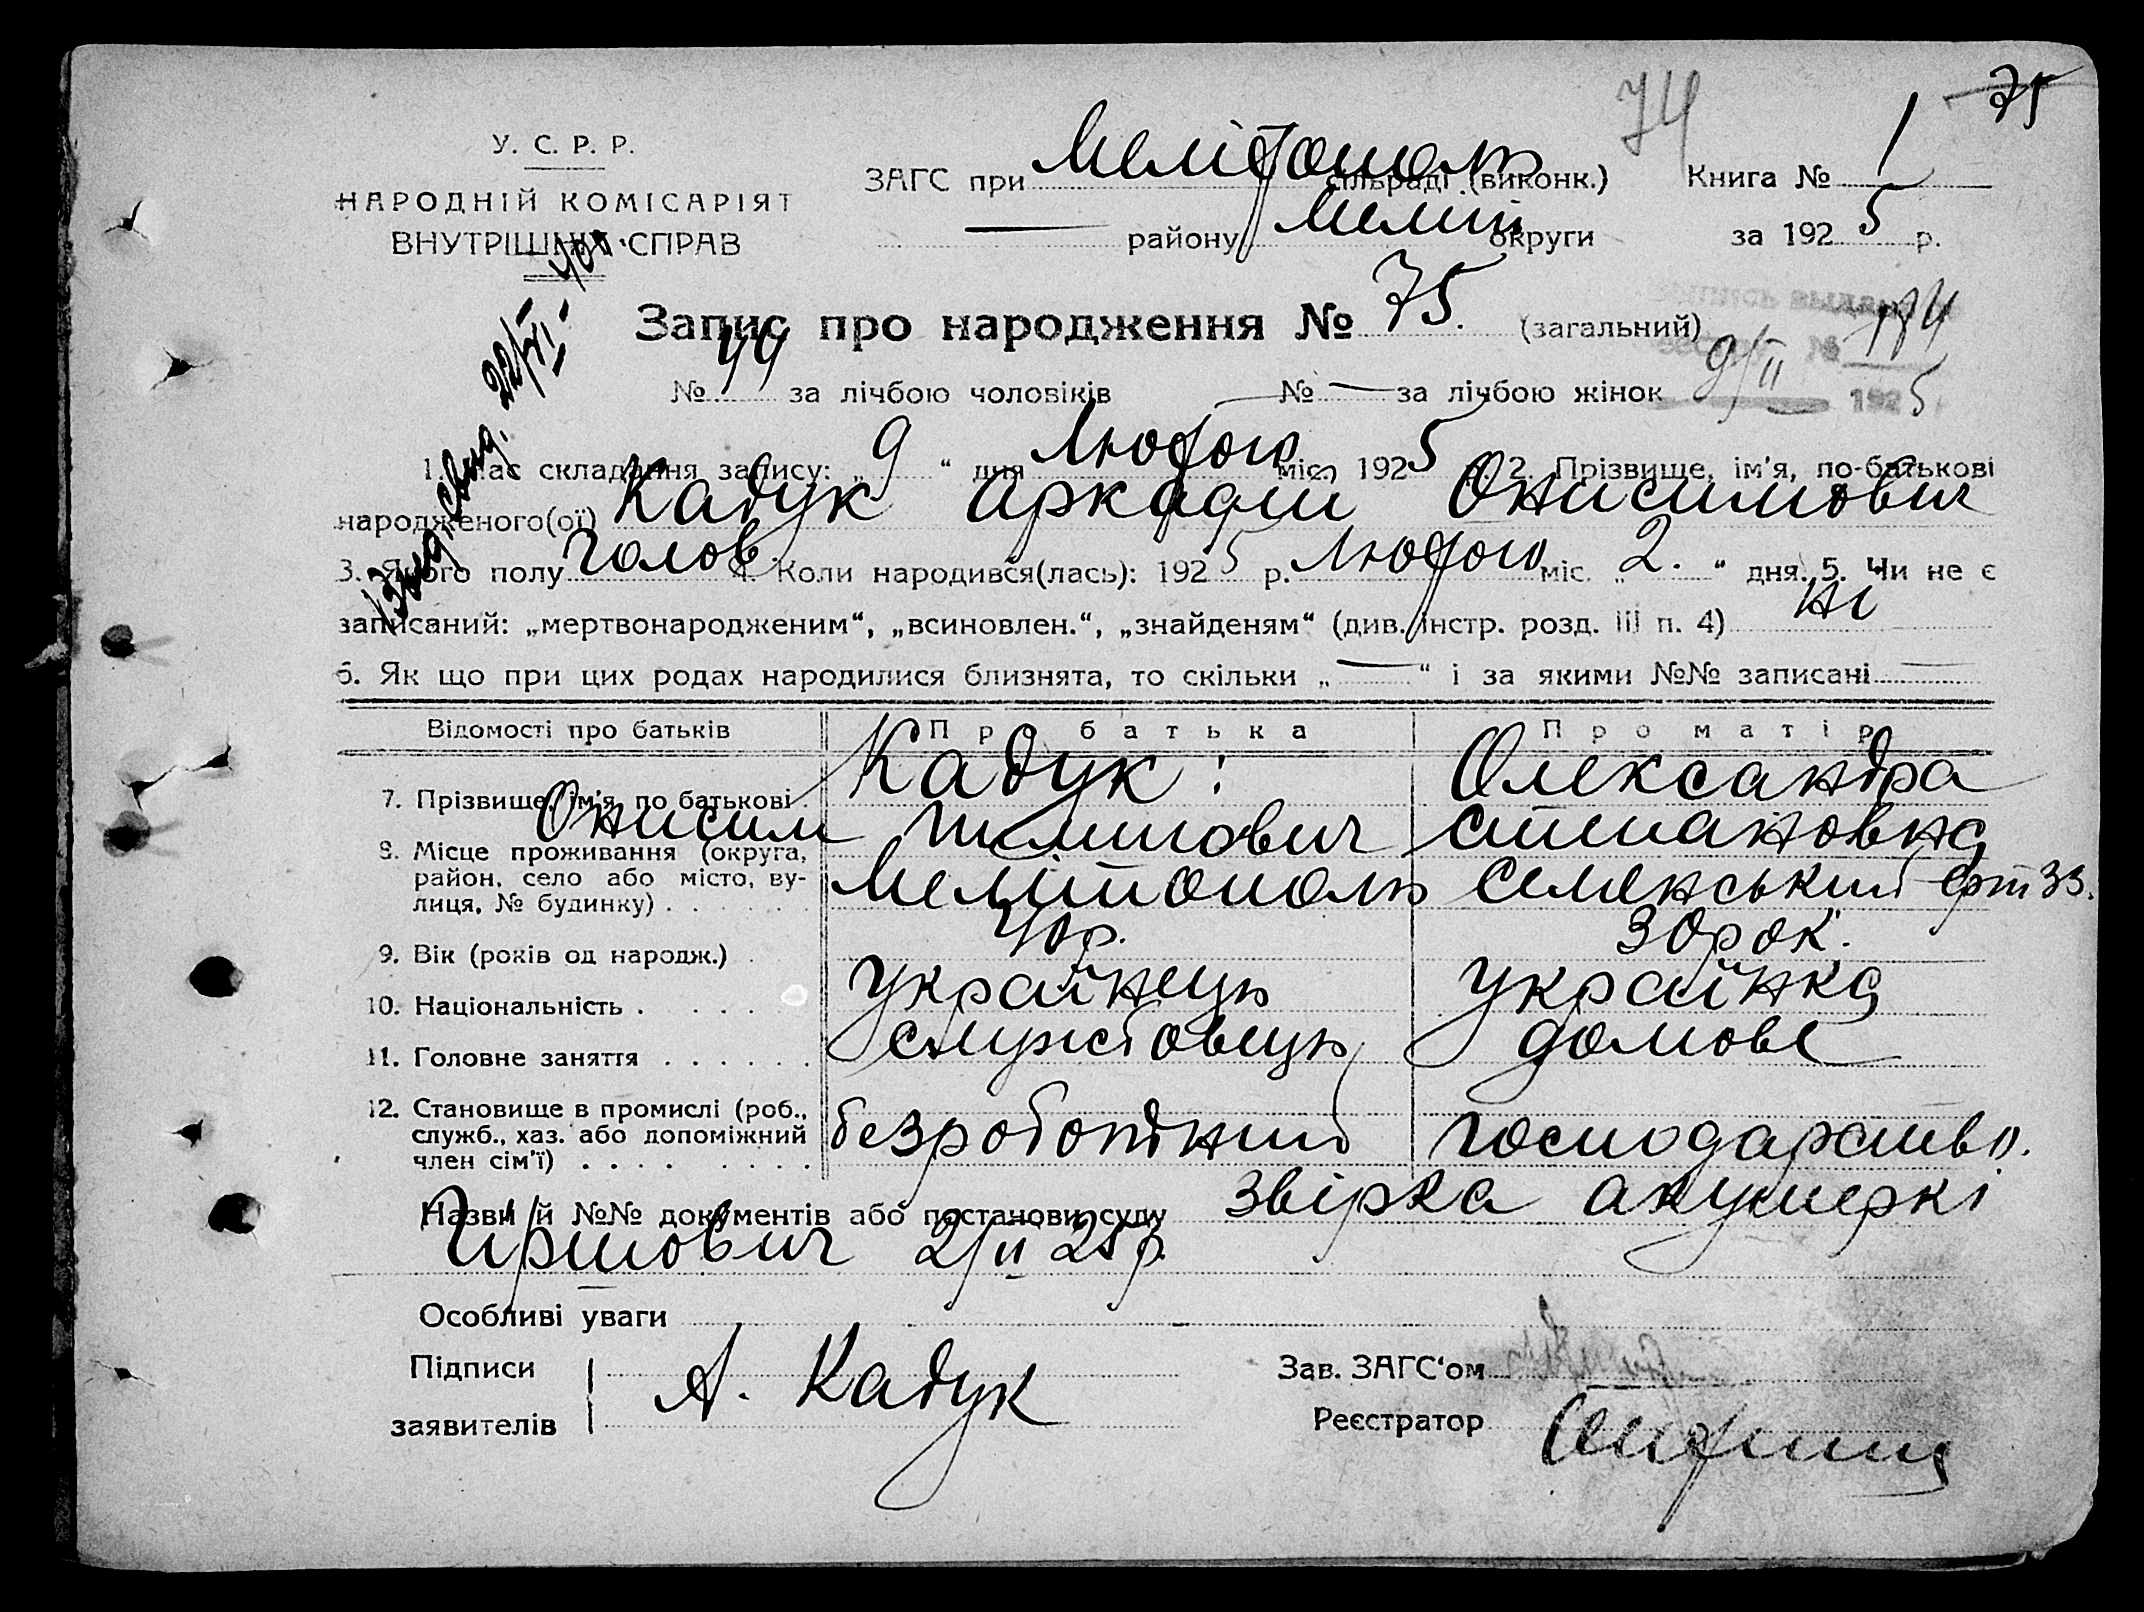 74 75
У. С. Р. Р.
НАРОДНІЙ КОМІСАРІЯТ
ВНУТРІШНІХ СПРАВ
ЗАГС при Мелітополь сільраді (виконк.) Книга № 1
— району Меліт округи за 1925 р.
Запис про народження № 75. (загальний)
выдана
№ 174
9/II 1925
№ 44 за лічбою чоловіків № — за лічбою жінок
22/VI - 40
1. Час складання запису: „9“ дня Лютого міс. 1925 2. Прізвище, ім'я, по-батькові
народженого(ої) Кадук Аркадій Онисимович
3. Якого полу чолов. 4. Коли народився(лась): 1925 р. Лютого міс. „2.“ дня. 5. Чи не є
записаний: „мертвонародженим“, „всиновлен.“, „знайденям“ (див. інстр. розд. III п. 4) ні
6. Як що при цих родах народилися близнята, то скільки „—“ і за якими №№ записані —
Відомості про батьків Про батька Про матір
7. Прізвище, ім'я, по батькові . Кадук: Олександра
Онисим Пилипович Степановна
8. Місце проживання (округа,
район, село або місто, ву-
лиця, № будинку) . . . . . . Мелітополь 33.
9. Вік (років од народж.) . 40 р. 30 рок.
10. Національність . . . . . Українець Українка
11. Головне заняття . . . . . . служтовець домове
12. Становище в промислі (роб.,
служб., хаз. або допоміжний
член сім'ї) . . . . . . . . . безроботний господарство.
Назви й №№ документів або постанови суду Звірка акушеркі
Гиршович 2/II 25 р.
Особливі уваги —
Підписи
заявителів А. Кадук
Зав. ЗАГС'ом
Реєстратор